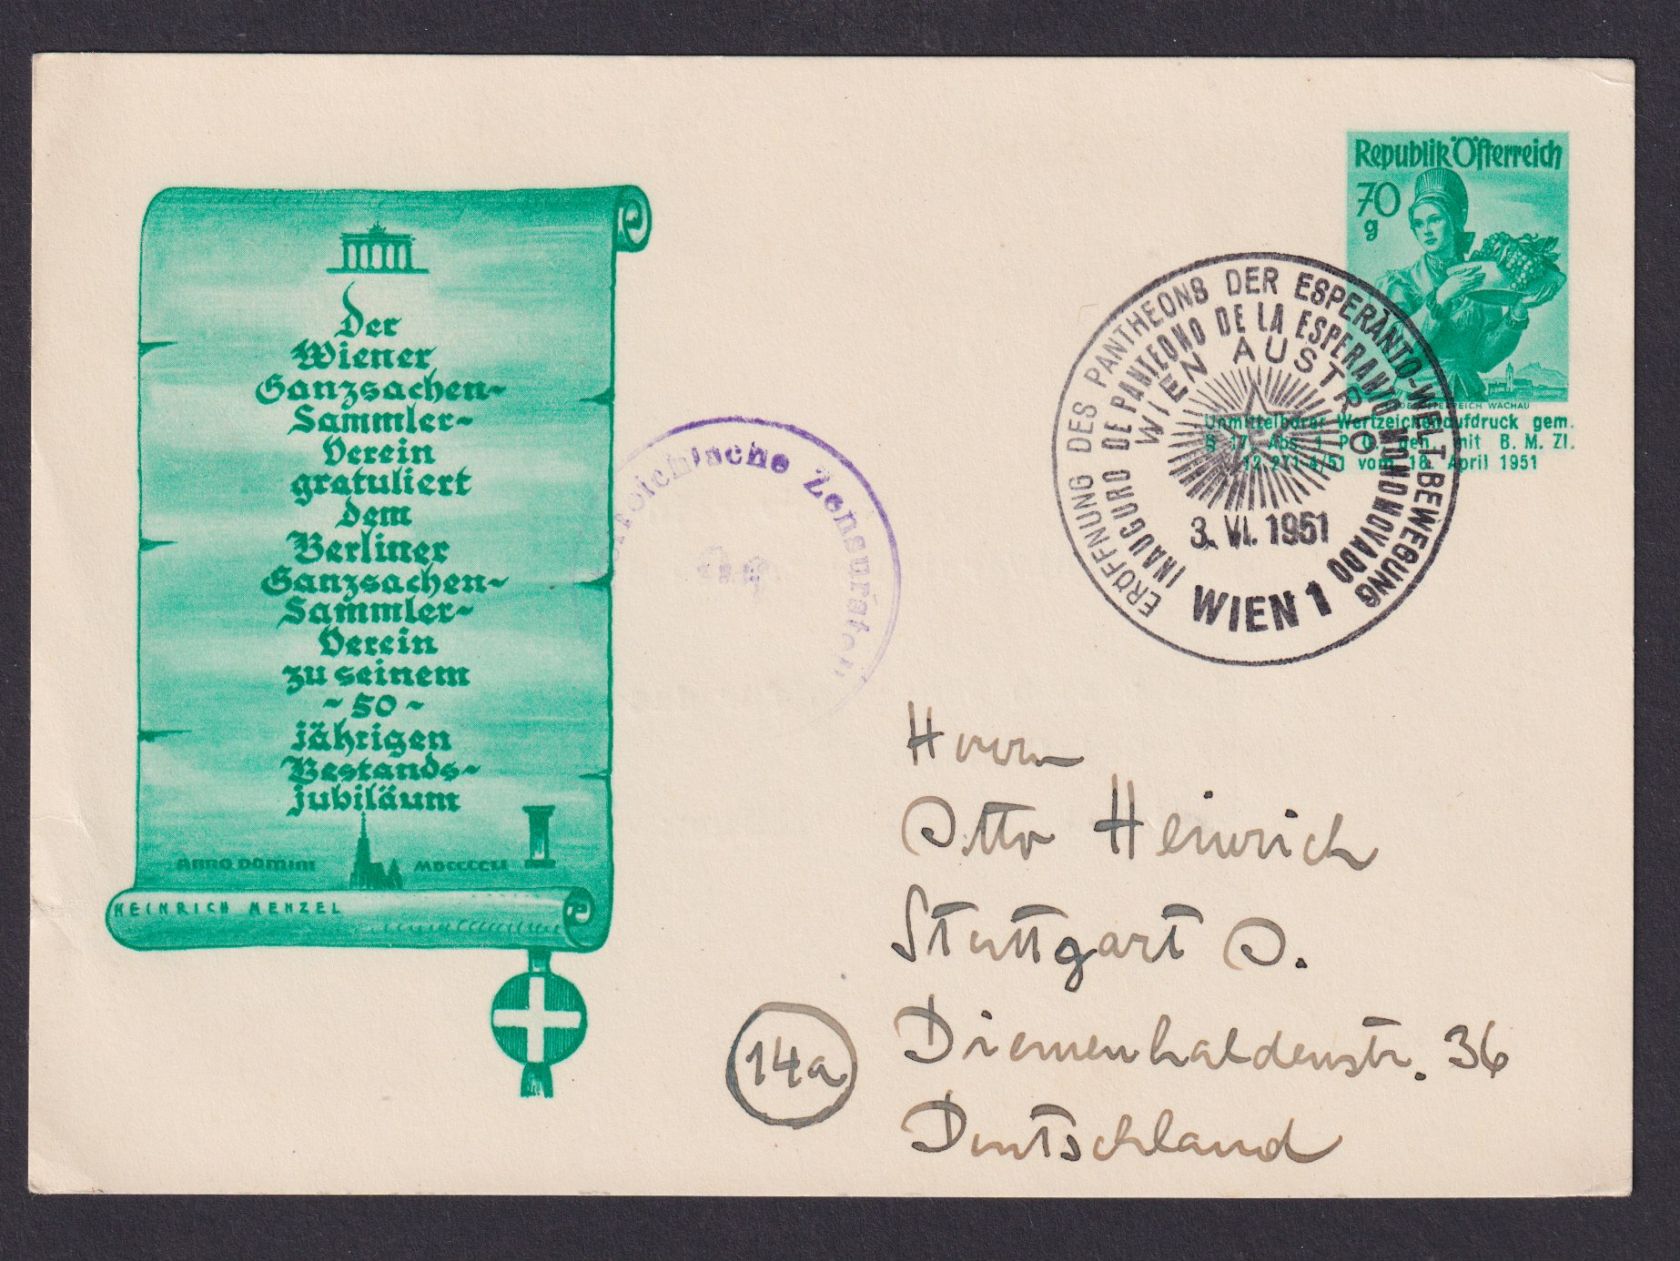 Der
Wiener
Ganzsachen-
Sammler-
Verein
gratuliert
dem
Berliner
Ganzsachen-
Sammler-
Verein
zu seinem
- 50 -
jährigen
Bestands-
jubiläum
ANNO DOMINI MDCCCCLI
HEINRICH MENZEL
Republik Österreich
70
g
WACHAU
Unmittelbarer Wertzeichenaufdruck gem.
Abs. 1 P. mit B. M. Zl.
4/51 vom 18. April 1951
ERÖFFNUNG DES PANTHEONS DER ESPERANTO-WELT-BEWEGUNG
INAUGURO DE PANTEONO DE LA ESPERANTO MONDMOVADO
WIEN AUSTRIO
3. VI. 1951
WIEN 1
Zensurstelle
Herrn
Otto Heinrich
Stuttgart O.
Diemenhaldenstr. 36
14a
Deutschland